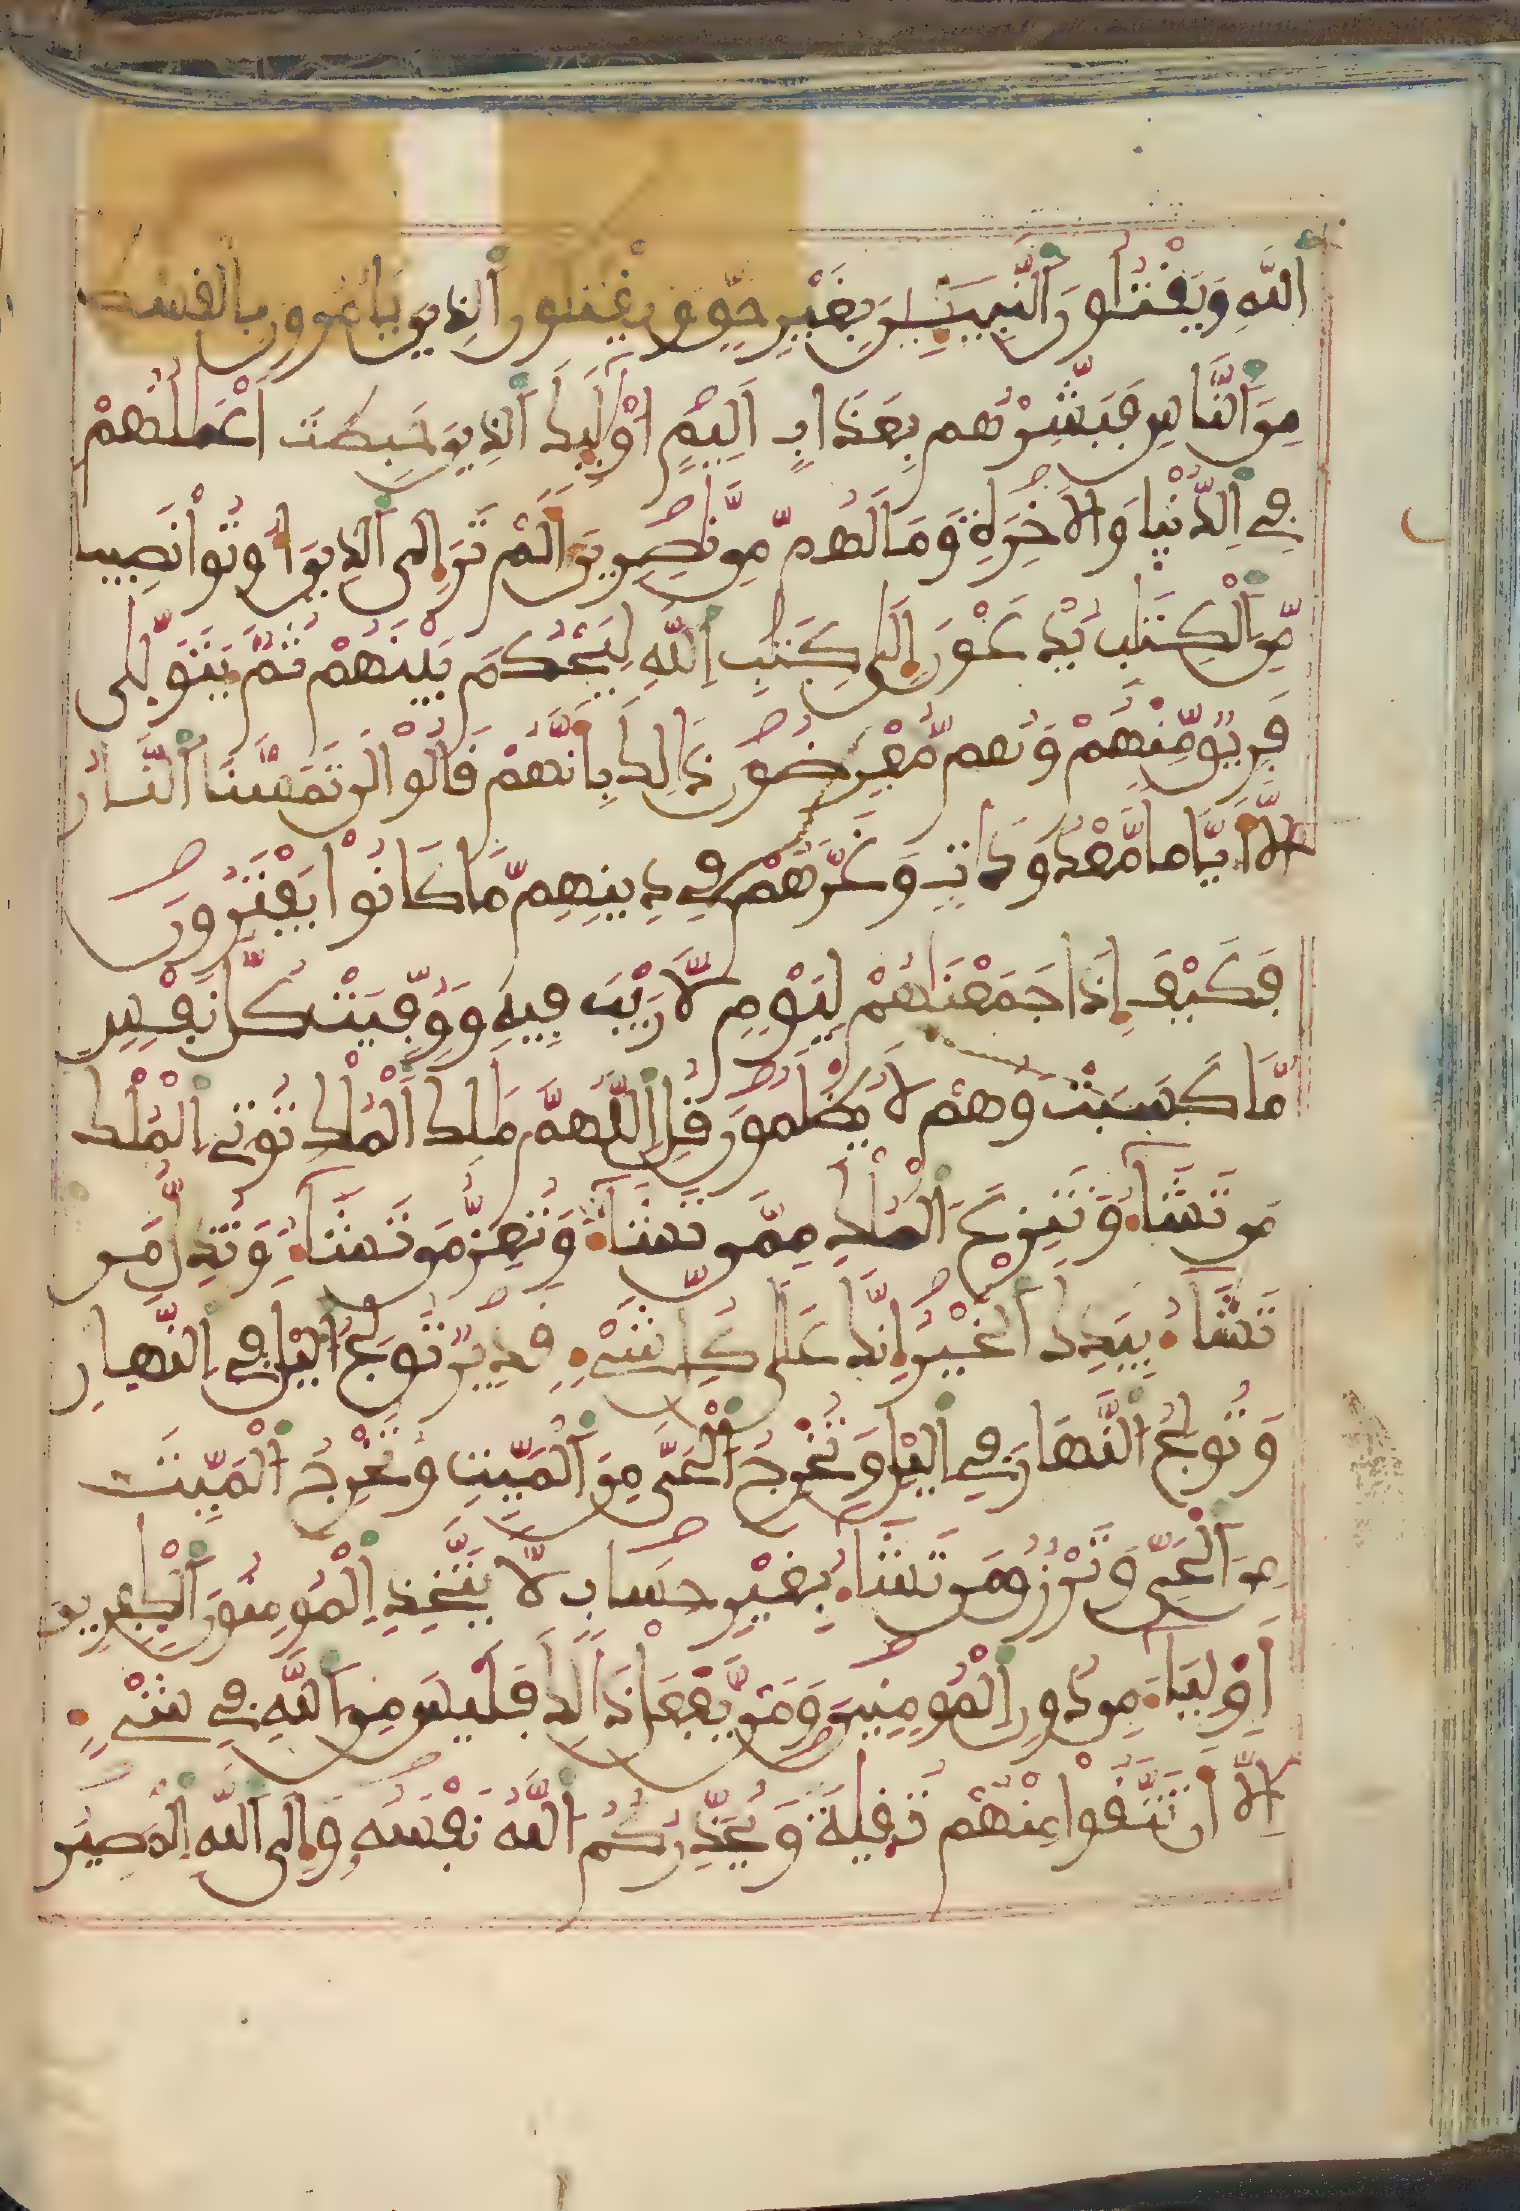 اَللَّهِ وَيَقْتُلُونَ اَلنَّبِيـِٕينَ بِغَيْرِ حَقٍّ وَيَقْتُلُونَ اَلذِينَ يَامُرُونَ بِالْقِسْطِ
مِنَ اَلنَّاسِ فَبَشِّرْهُم بِعَذَابٍ اَلِيمٍ اوْلَٰٓئِكَ اَلذِينَ حَبِطَتَ اَعْمَٰلُهُمْ
فِے اِلدُّنْيا وَالَاخِرَةِ وَمَا لَهُم مِّن نَّٰصِرِينَ أَلَمْ تَرَ إِلَى اَلذِينَ أُوتُواْ نَصِيبا
مِّنَ اَلْكِتَٰبِ يُدْعَوْنَ إِلَىٰ كِتَٰبِ اِللَّهِ لِيَحْكُمَ بَيْنَهُمْ ثُمَّ يَتَوَلَّىٰ
فَرِيقٌ مِّنْهُمْ وَهُم مُّعْرِضُونَ ذَٰلِكَ بِأَنَّهُمْ قَالُواْ لَن تَمَسَّنَا اَلنَّارُ
إِلَّا أَيَّاما مَّعْدُودَاتٍ وَغَرَّهُمْ فِے دِينِهِم مَّا كَانُواْ يَفْتَرُونَ
فَكَيْفَ إِذَا جَمَعْنَٰهُمْ لِيَوْمٍ لَّا رَيْبَ فِيهِ وَوُفِّيَتْ كُلُّ نَفْسٍ
مَّا كَسَبَتْ وَهُمْ لَا يُظْلَمُونَ قُلِ اِللَّهُمَّ مَٰلِكَ اَلْمُلْكِ تُوتِے اِلْمُلْكَ
مَن تَشَآءُ وَتَنزِعُ اُلْمُلْكَ مِمَّن تَشَآءُ وَتُعِزُّ مَن تَشَآءُ وَتُذِلُّ مَن
تَشَآءُ بِيَدِكَ اَلْخَيْرُ إِنَّكَ عَلَىٰ كُلِّ شَےْءٍ قَدِيرٌ تُولِجُ اُليْلَ فِے اِلنَّهارِ
وَتُولِجُ اُلنَّهَارَ فِے اِليْلِ وَتُخْرِجُ اُلْحَيَّ مِنَ اَلْمَيِّتِ وَتُخْرِجُ اُلْمَيِّتَ
مِنَ اَلْحَيِّ وَتَرْزُقُ مَن تَشَآءُ بِغَيْرِ حِسَابٍ لَّا يَتَّخِذِ اِلْمُومِنُونَ اَلْكٰفِرِينَ
أَوْلِيَآءَ مِن دُونِ اِلْمُومِنِينَ وَمَن يَّفْعَلْ ذَٰلِكَ فَلَيْسَ مِنَ اَللَّهِ فِے شَےْءٍ
اِلَّا أَن تَتَّقُواْ مِنْهُمْ تُقيٰةً وَيُحَذِّرُكُمُ اُللَّهُ نَفْسَهُ وَإِلَى اَللَّهِ اِلْمَصِيرُ